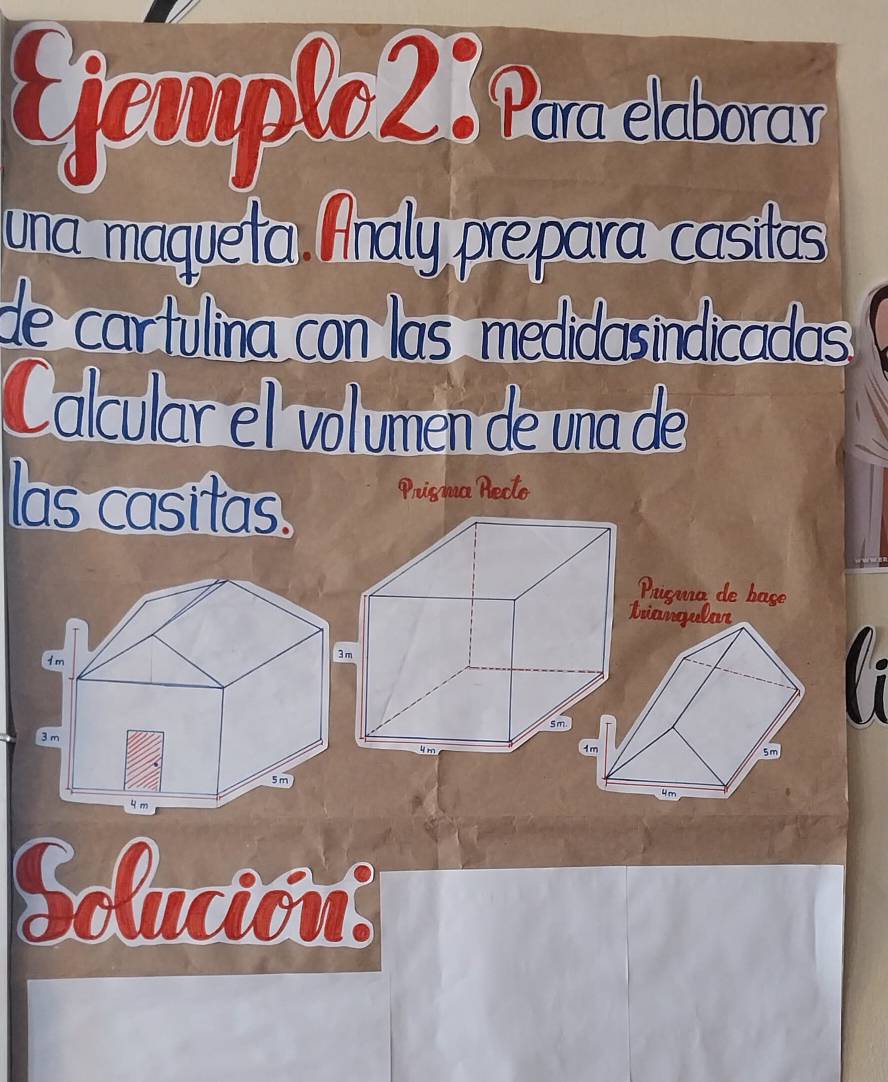 Ejemplo 2: Para elaborar
una maqueta. Analy prepara casitas
de cartulina con las medidas indicadas.
Calcular el volumen de una de
las casitas.
Prisma Recto
Prisma de base
triangular
1m
3m
4m
5m
3m
4m
5m.
1m
4m
5m
Solución:
li